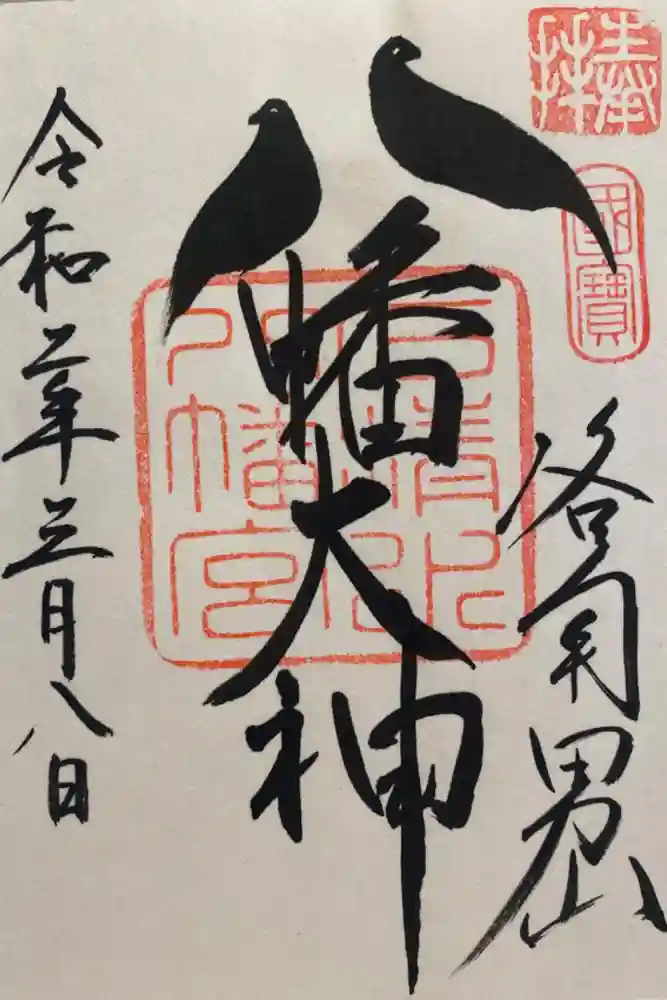 奉拜
國寶
洛南男山
八幡大神
石清水
八幡宮
令和二年三月八日